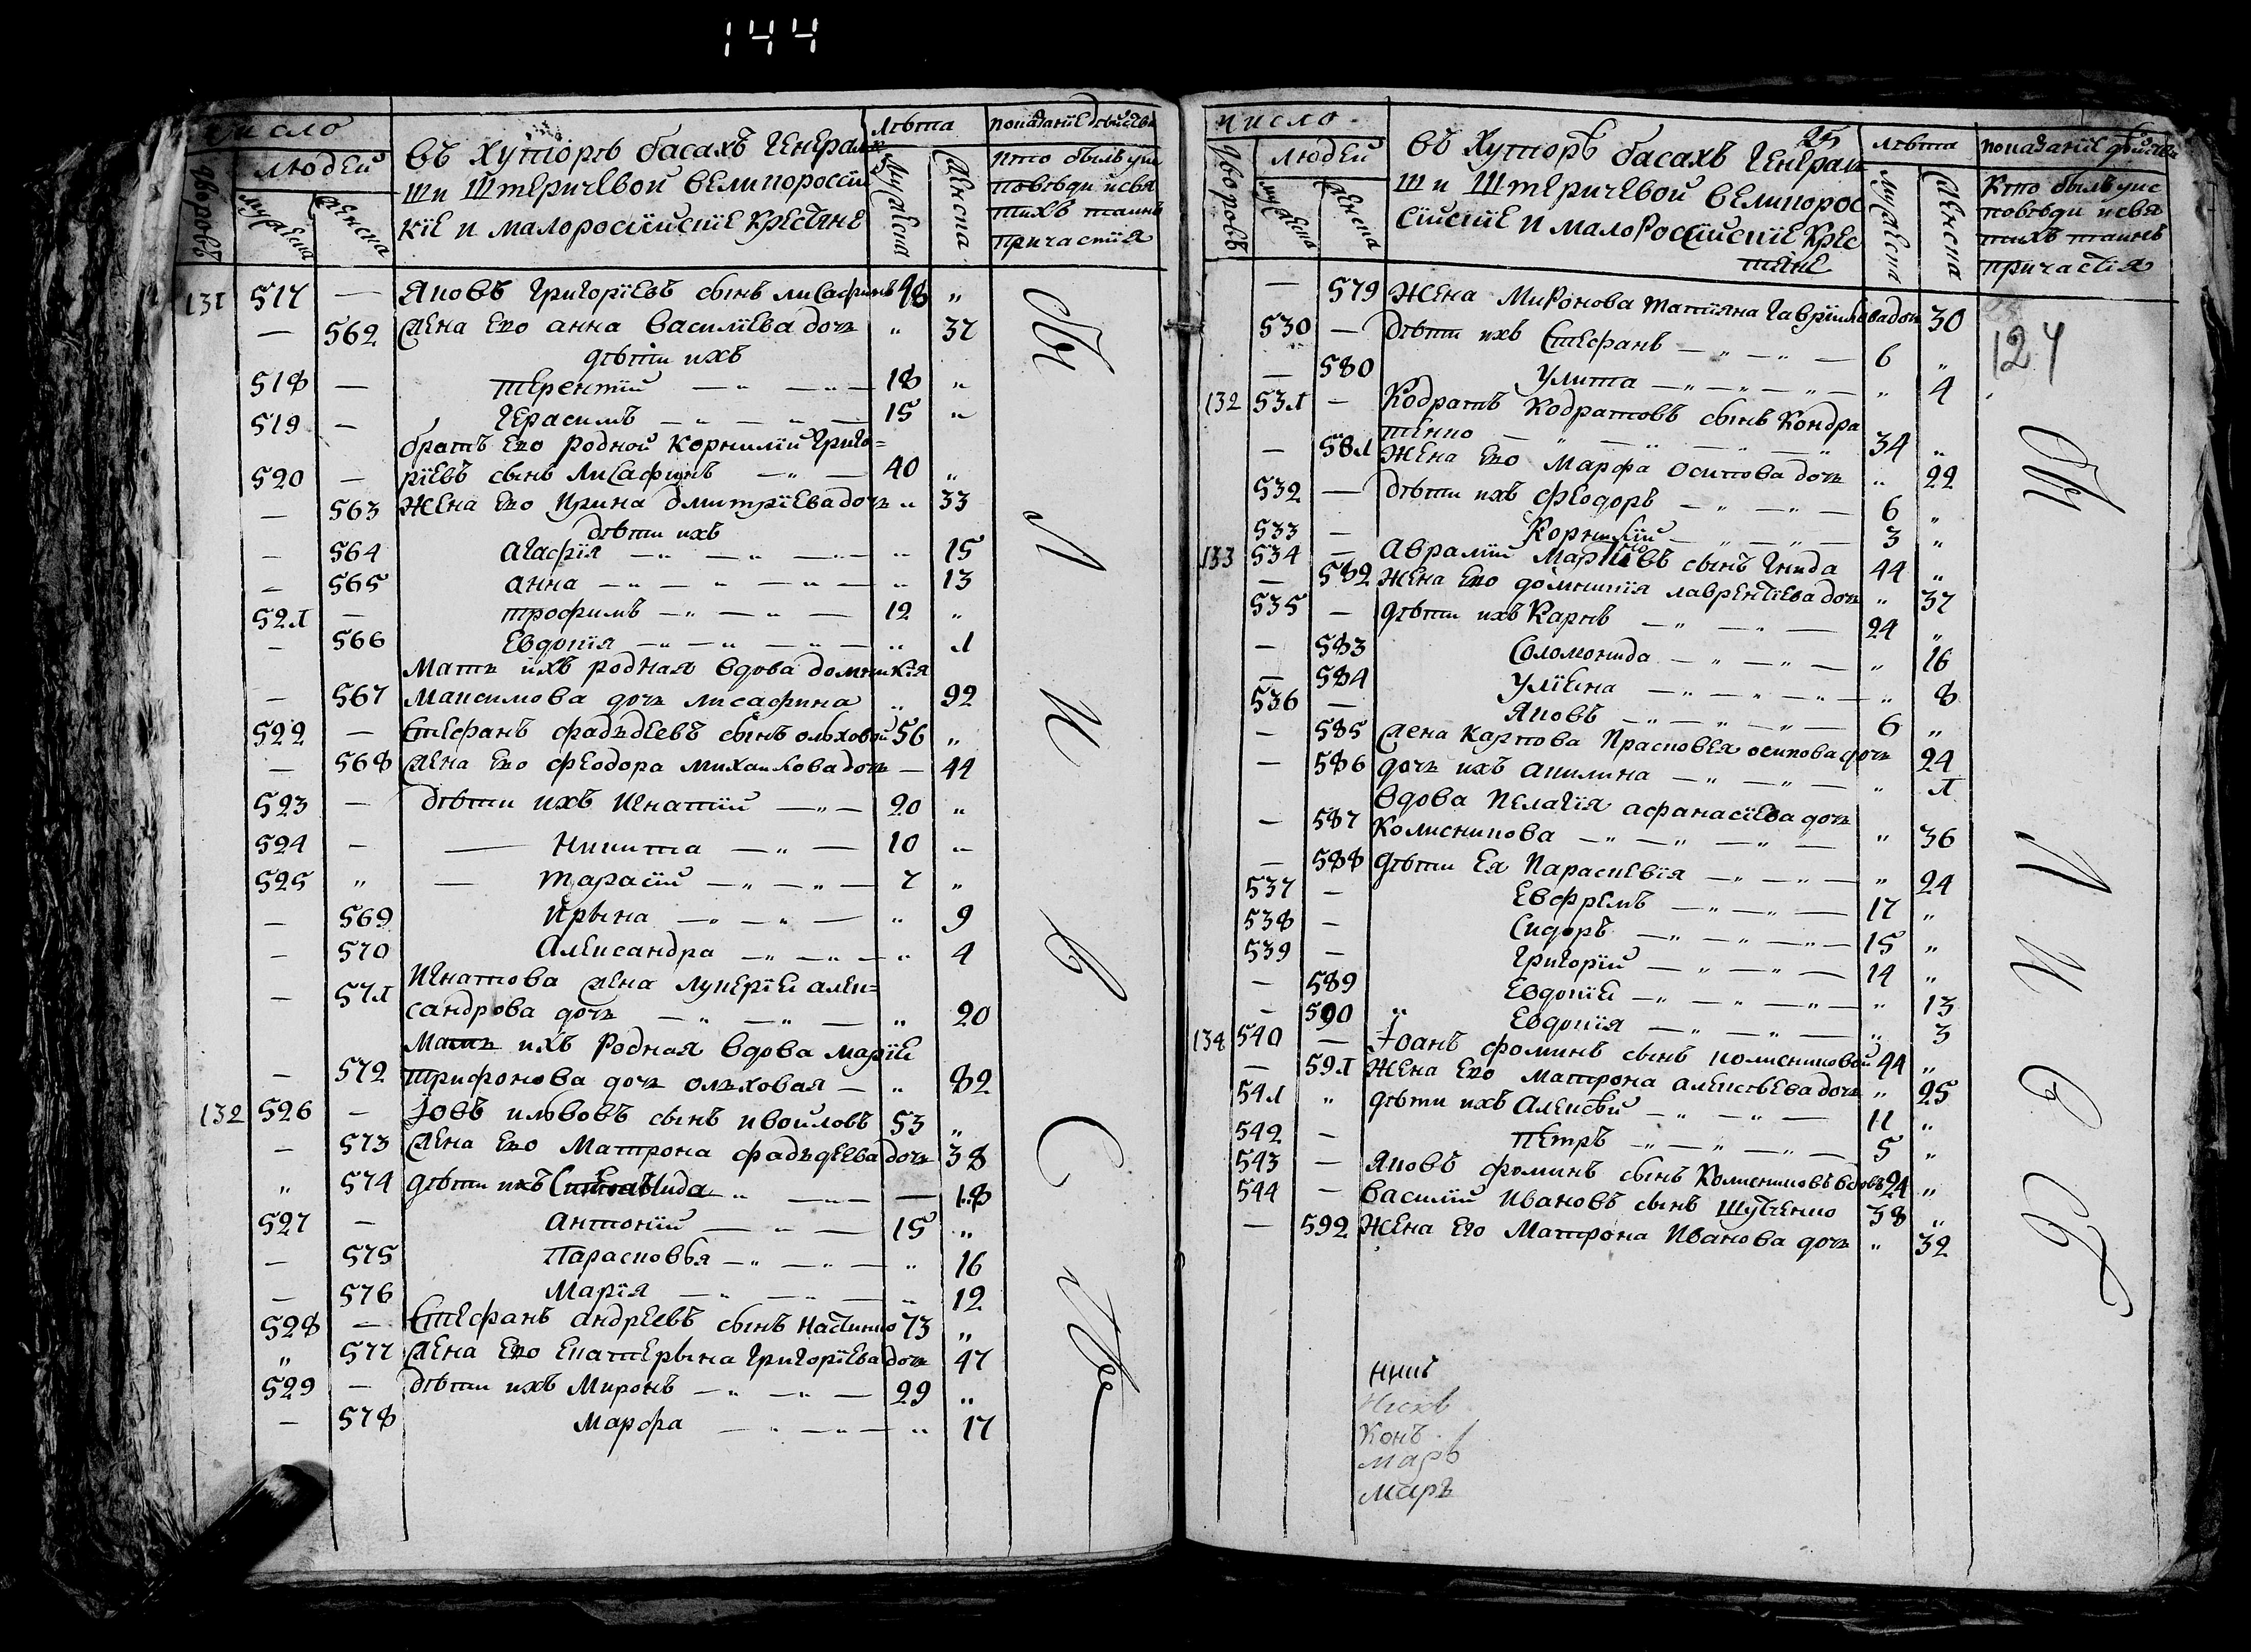 144
число
лѣта
показанїе дѣйства
дворовъ
людей
мужеска
женска
въ хуторѣ басахъ генерал
ши штеричевой великороссїйс
кїе и малоросїйскїе крестяне
мужеска
женска
кто былъ у ис
повѣди и свя
тихъ таинъ
причастїя
131 517 — Яковъ григорїевъ сынъ лисафинъ 48 „
— 562 жена его анна василїева дочь „ 37
дѣти ихъ
518 — терентїй — „ — „ — 18 „
519 — герасимъ — „ — „ — 15 „
братъ его родной корнилїй григо=
520 — рїевъ сынъ лисафинъ — „ — 40 „
— 563 жена его ирина дмитрїева дочь „ 33
дѣти ихъ
— 564 агафїя — „ — „ — „ — „ 15
— 565 анна — „ — „ — „ — „ 13
521 — трофимъ — „ — „ — 12 „
— 566 евдокїя — „ — „ — „ — „ 1
мать ихъ родная вдова домникїя
— 567 максимова дочь лисафина „ 92
522 — стефанъ фадъдеевъ сынъ ольховой 56 „
— 568 жена его феодора михайлова дочь — 44
523 — дѣти ихъ игнатїй — „ — 20 „
524 — — никита — „ — 10 „
525 „ — тарасїй — „ — „ — 7 „
— 569 ирына — „ — „ — „ 9
— 570 александра — „ — „ — „ 4
игнатова жена лукерїя алек=
— 571 сандрова дочь — „ — „ — „ 20
мать ихъ родная вдова марїя
— 572 трифонова дочь ольховая — „ 82
132 526 — Їовъ сынъ 53 „
— 573 жена его матрона фадъдеева дочь 38
„ 574 дѣти ихъ — „ — „ — — 18
527 — антонїй — „ — 15 „
— 575 парасковья — „ — „ — „ 16
— 576 марїя — „ — „ — „ 12
528 — стефанъ андреевъ сынъ 73 „
„ 577 жена его екатерына григорїева дочь 47
529 — дѣти ихъ миронъ — „ — „ — 29 „
— 578 марфа — „ — „ — „ 17
число
25
лѣта
показанїе дѣйства
дворовъ
людей
мужеска
женска
въ хуторѣ басахъ генерал
ши штеричевой великорос
сїйскїе и малоросїйскїе крес
тяне
мужеска
женска
кто былъ у ис
повѣди и свя
тихъ таинъ
причастїя
124
— 579 жена миронова татїяна гаврїилова дочь 30
530 — дѣти ихъ стефанъ — „ — „ — 6 „
— 580 улита — „ — „ — „ — „ 4
132 531 — кодратъ кодратовъ сынъ кондра
тенко — „ — „ — „ — „ 34 „
— 581 жена его марфа осипова дочь „ 22
532 — дѣти ихъ феодоръ — „ — „ — 6 „
533 — корнилїй — „ — „ — 3 „
133 534 — авралїй сынъ гнида 44 „
— 582 жена его домникїя лаврентїева дочь „ 37
535 — дѣти ихъ карпъ — „ — „ — 24 „
— 583 соломонида — „ — „ — „ 16
— 584 улїяна — „ — „ — „ — „ 8
536 — яковъ — „ — „ — „ — 6 „
— 585 жена карпова прасковея осипова дочь 24
— 586 дочь ихъ акилина — „ — „ — „ 1
вдова пелагїя афанасїева дочь
— 587 колисникова — „ — „ — „ — „ 36
— 588 дѣти ея параскевїя — „ — „ — „ 24
537 — евфремъ — „ — „ — 17 „
538 — сидоръ — „ — „ — „ — 15 „
539 — григорїй — „ — „ — 14 „
— 589 евдокїя — „ — „ — „ — „ 13
— 590 „ евдокїя — „ — „ — „ 3
134 540 — Їоанъ фоминъ сынъ колисниковой 44 „
— 591 жена его матрона алексѣева дочь „ 25
541 „ дѣти ихъ алексѣй — „ — „ — 11 „
542 — петръ — „ — „ — „ — 5 „
543 — яковъ фоминъ сынъ колисниковъ вдовъ 24 „
544 — василїй ивановъ сынъ шутенко 38 „
— 592 жена его матрона иванова дочь „ 32
Конъ
маръ
маръ